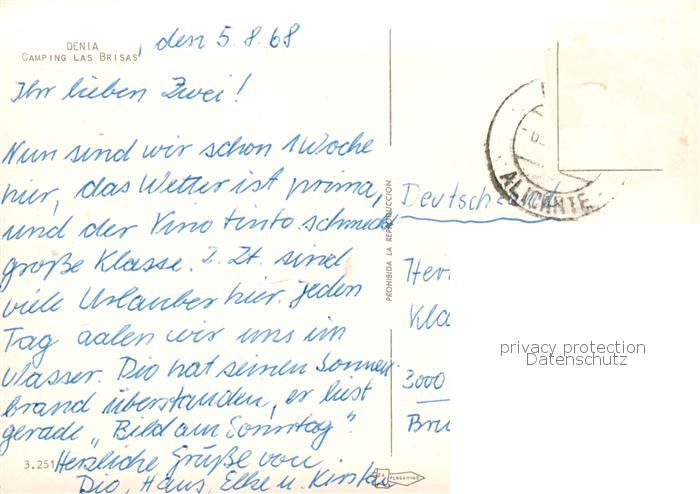 DENIA
CAMPING LAS BRISAS
, den 5.8.68
Ihr lieben Zwei!
Nun sind wir schon 1 Woche
hier, das Wetter ist prima,
und der Vino tinto schmeckt
große Klasse. Z. Zt. sind
viele Urlauber hier. Jeden
Tag aalen wir uns im
Wasser. Dio hat seinen Sonnen-
brand überstanden, er liest
gerade „Bild am Sonntag".
Herzliche Grüße von
Dio, Hans, Elke u. Kirsten
3.251
PROHIBIDA LA REPRODUCCION
PERGAMINO
ALICANTE
Deutschland
Herr
Kla
3000
Bru
privacy protection
Datenschutz